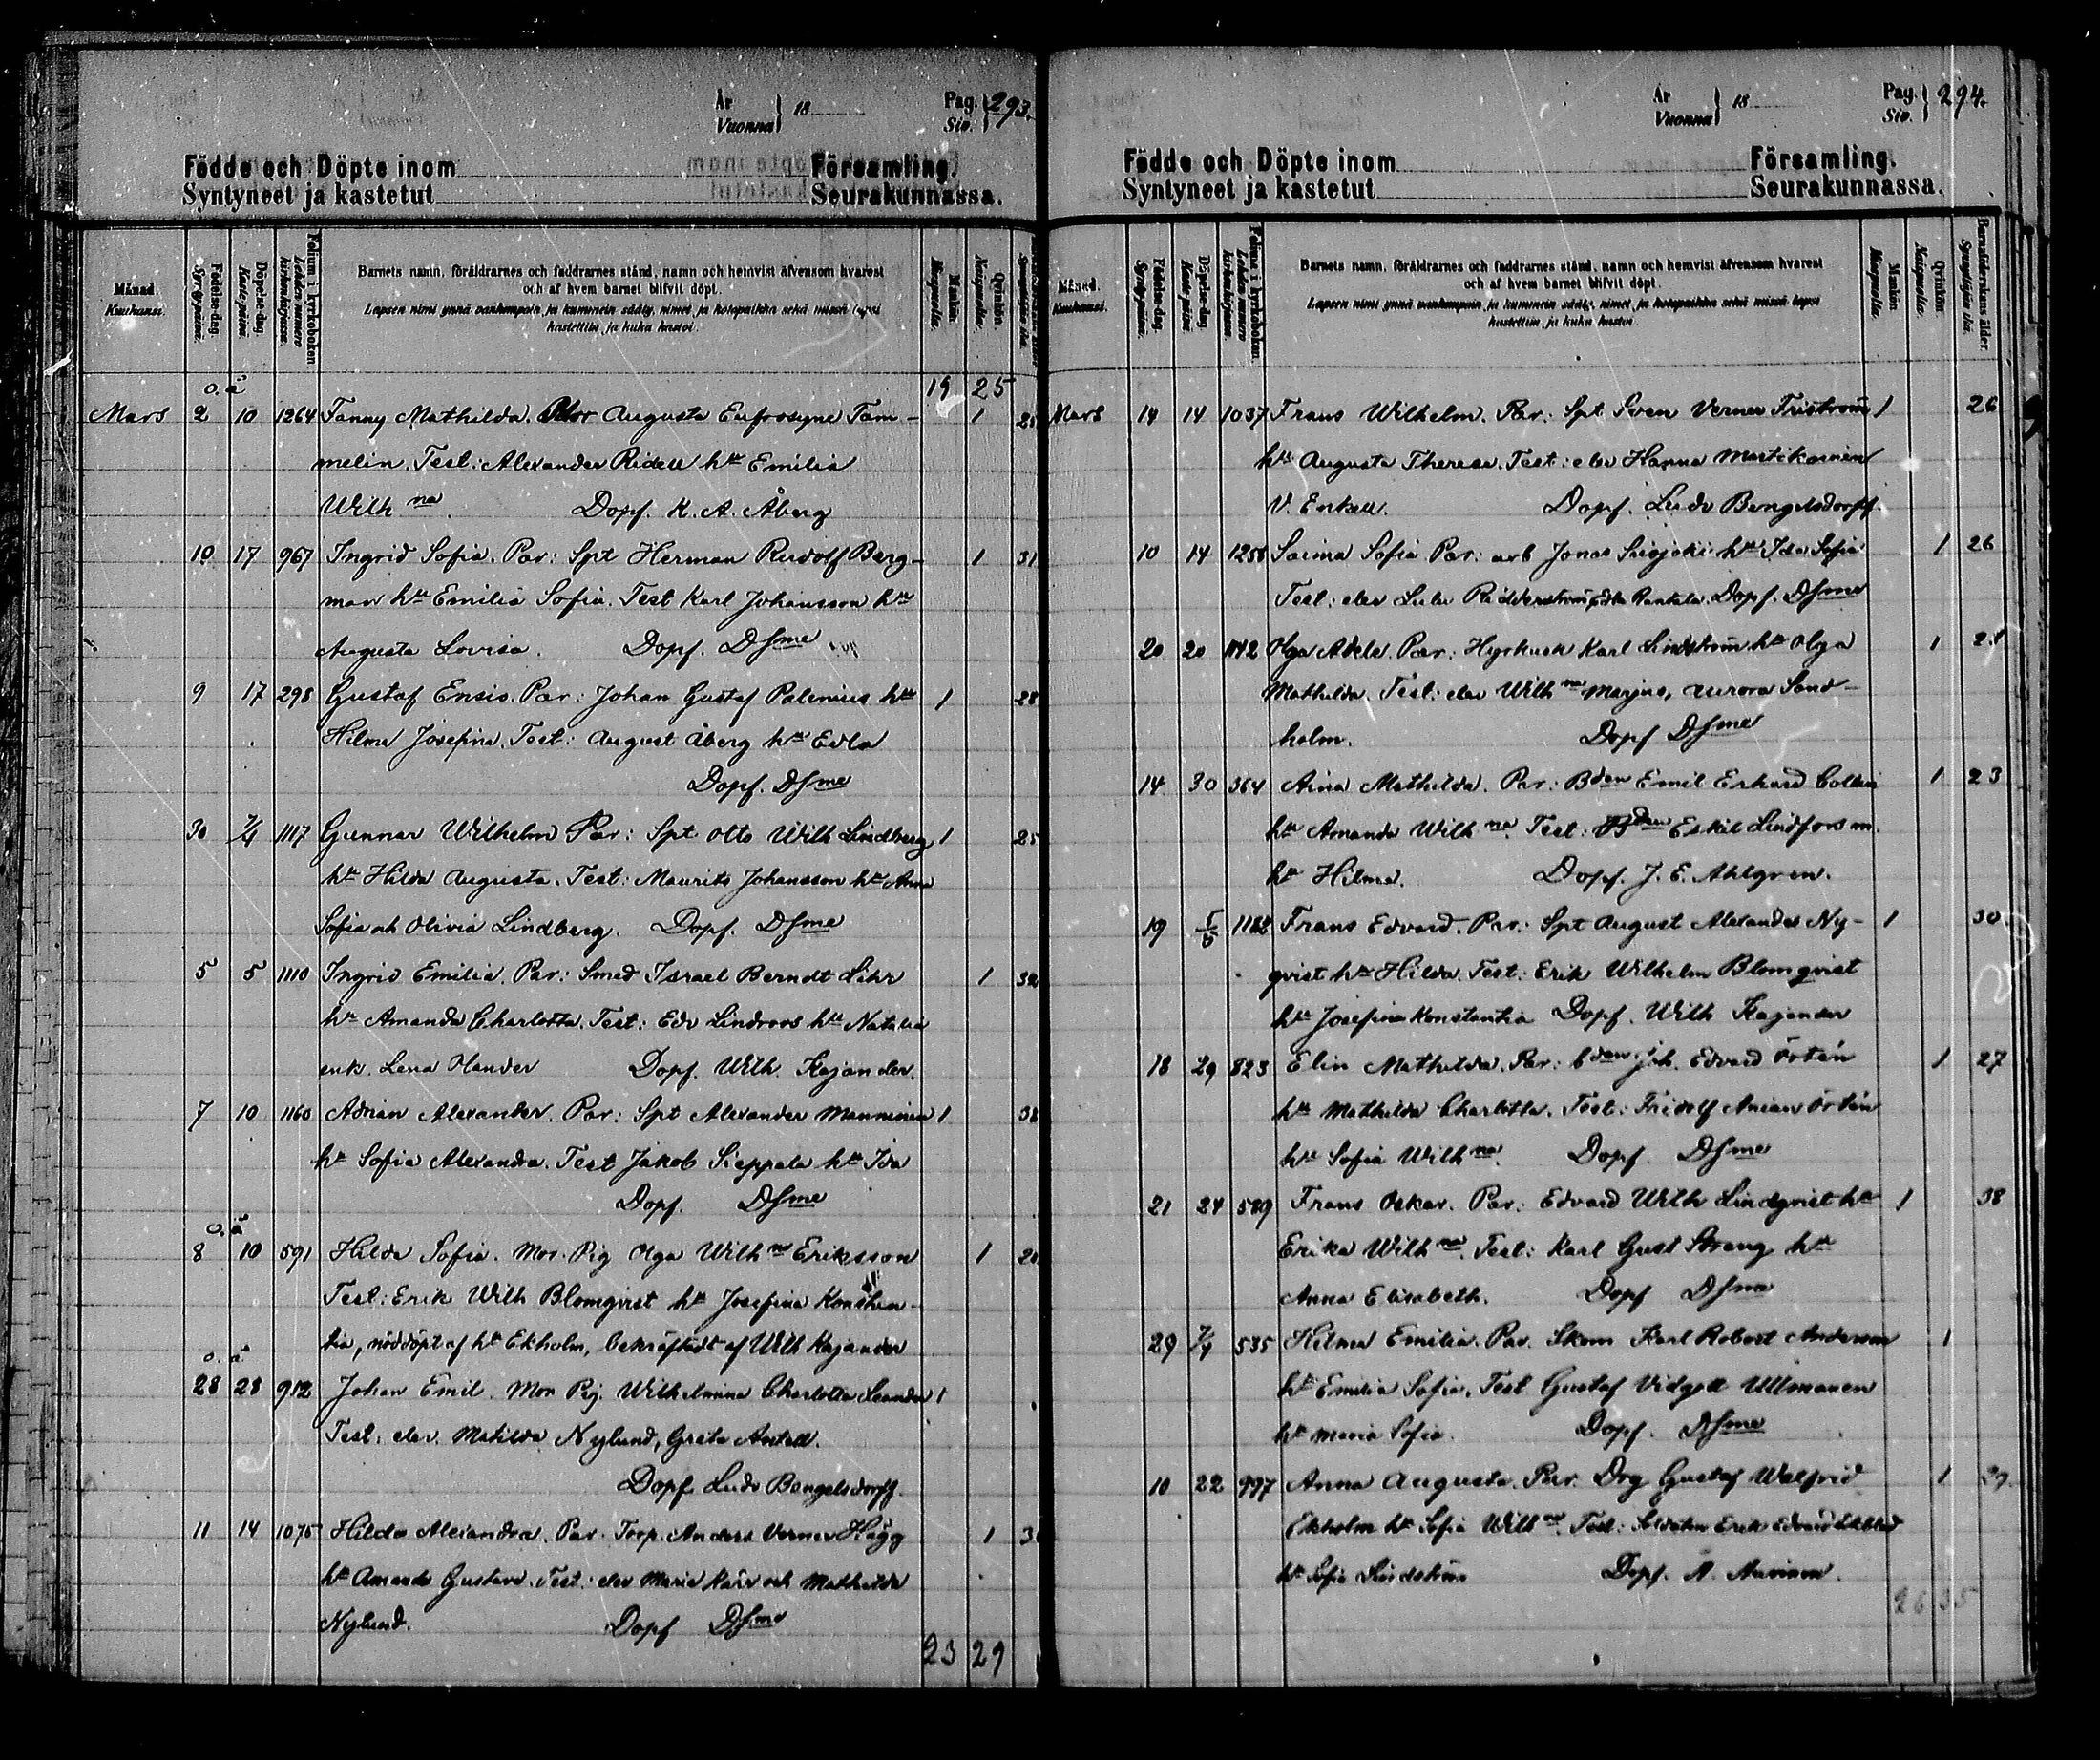 År
Vuonna } 18
Pag.
Siv. } 293.
Födde och Döpte inom Församling.
Syntyneet ja kastetut Seurakunnassa.
Månad.
Kuukausi.
Födelse-dag.
Syntymäpäivä.
Döpelse-dag.
Kastepäivä.
Folium i kyrkoboken.
Lehden numero kirkonkirjassa.
Barnets namn, föräldrarnes och faddrarnes stånd, namn och hemvist äfvensom hvarest
och af hvem barnet blifvit döpt.
Lapsen nimi ynnä vanhempain ja kummein sääty, nimet ja kotopaikka sekä missä lapsi
kastettiin ja kuka kastoi.
Mankön.
Miespuolia.
Qvinkön.
Naispuolia.
19 25
o. ä
Mars 2 10 1264 Fanny Mathilda. Mor Augusta Eufrosyne Tam- 1
melin. Test: Alexander Ridell hu Emilia
Wilh na Dopf. K. A. Åberg
10 17 967 Ingrid Sofia. Par: Spt Herman Rudolf Berg- 1 31
man hu Emilia Sofia. Test Karl Johansson hu
Augusta Lovisa. Dopf. Dsme
9 17 298 Gustaf Ensio. Par: Johan Gustaf Palenius hu 1 28
Hilma Josefina. Test: August Åberg hu Edla
Dopf. Dsme
30 7/4 1117 Gunnar Wilhelm Par: Spt Otto Wilh Lindberg 1 25
hu Hilda Augusta. Test: Maurits Johansson hu Anna
Sofia och Olivia Lindberg. Dopf. Dsme
5 5 1110 Ingrid Emilia. Par: Smed Israel Berndt Lihr 1
hu Amanda Charlotta. Test: Edv Lindroos hu Natalia
enk. Lena Olander Dopf. Wilh. Kajander.
7 10 1160 Adrian Alexander. Par: Spt Alexander Manninen 1 38
hu Sofia Alexandra. Test Jakob Sieppala hu Ida
Dopf. Dsme
o. ä
8 10 591 Hilda Sofia. Mor. Pig Olga Wilh na Eriksson 1
Test: Erik Wilh Blomqvist hu Josefina Konstan-
tia, nöddöpt af hu Ekholm, bekräftadt af Wilh Kajander
o. ä
28 28 912 Johan Emil. Mor Pig. Wilhelmina Charlotta Leander 1
Test. elev. Matilda Nylund, Greta Antell.
Dopf Ludv Bengelsdorff.
11 14 1075 Hilda Alexandra. Par. Torp. Anders Verner Hägg 1
hu Amanda Gustava. Test. elev Maria Karr och Mathilda
Nylund. Dopf Dsme
23 29
År
Vuonna } 18
Pag.
Siv. } 294.
Födde och Döpte inom Församling.
Syntyneet ja kastetut Seurakunnassa.
Månad.
Kuukausi.
Födelse-dag.
Syntymäpäivä.
Döpelse-dag.
Kastepäivä.
Folium i kyrkoboken.
Lehden numero kirkonkirjassa.
Barnets namn, föräldrarnes och faddrarnes stånd, namn och hemvist äfvensom hvarest
och af hvem barnet blifvit döpt.
Lapsen nimi ynnä vanhempain ja kummein sääty, nimet ja kotopaikka sekä missä lapsi
kastettiin ja kuka kastoi.
Mankön
Miespuolia.
Qvinkön
Naispuolia.
Barnaföderskans ålder.
Synnyttäjän ikä.
Mars 14 14 1037 Frans Wilhelm. Par: Spt Sven Verner Friström 1 26
hu Augusta Theresa. Test: elev Hanna Martikainen
V. Enkell. Dopf. Ludv Bengelsdorff.
10 14 1258 Saima Sofia Par: arb Jonas Suojoki hu Ida Sofia 1 26
Test: elev Lulu Ridderström, Edla Rantala. Dopf. Dsme
20 20 1142 Olga Adele. Par: Hyrkusk Karl Lindström hu Olga 1
Mathilda. Test: elev Wilh na Marjus, Aurora Sand-
holm. Dopf Dsme
14 30 364 Aina Mathilda. Par: Bden Emil Erhard 1 23
hu Amanda Wilh na. Test: Bden Eskil Lindfors m.
hu Hilma. Dopf. J. E. Ahlgren.
19 5/5 1182 Frans Edvard. Par: Spt August Alexander Ny- 1 30
qvist hu Hilda. Test: Erik Wilhelm Blomqvist
hu Josefina Konstantia Dopf. Wilh Kajander
18 29 823 Elin Mathilda. Par: bden Joh. Edvard Örtén 1 27
hu Mathilda Charlotta. Test: Fridolf Anian Örtén
hu Sofia Wilh na. Dopf Dsme
21 24 589 Frans Oskar. Par: Edvard Wilh Lindqvist hu 1 38
Erika Wilh na. Test: Karl Gust Strang hu
Anna Elisabeth. Dopf Dsme
29 7/4 535 Hilma Emilia. Par. Skom Karl Robert Anderson 1
hu Emilia Sofia. Test Gustaf Vidgell Ullmanen
hu Maria Sofia. Dopf. Dsme
10 22 997 Anna Augusta. Par. Drg Gustaf Walfrid 1 29
Ekholm hu Sofia Wilh na. Test: Soldaten Erik Edvard Ekblad
hu Sofia Lindström Dopf. A.
26 35